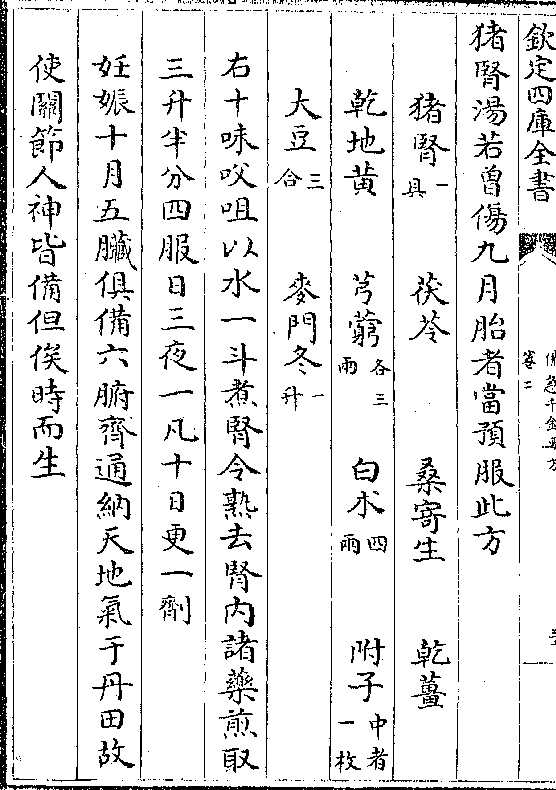 欽定四庫全書
卷二
猪腎湯若曾傷九月胎者當預服此方
猪腎一具 茯苓 桑寄生 乾薑
乾地黄 芎藭各三兩 白术四兩 附子中者一枚
大豆三合 麥門冬一升
右十味㕮咀以水一斗煮腎令熟去腎内諸藥煎取
三升半分四服日三夜一凡十日更一劑
妊娠十月五臟俱備六腑齊通納天地氣于丹田故
使關節人神皆備但俟時而生